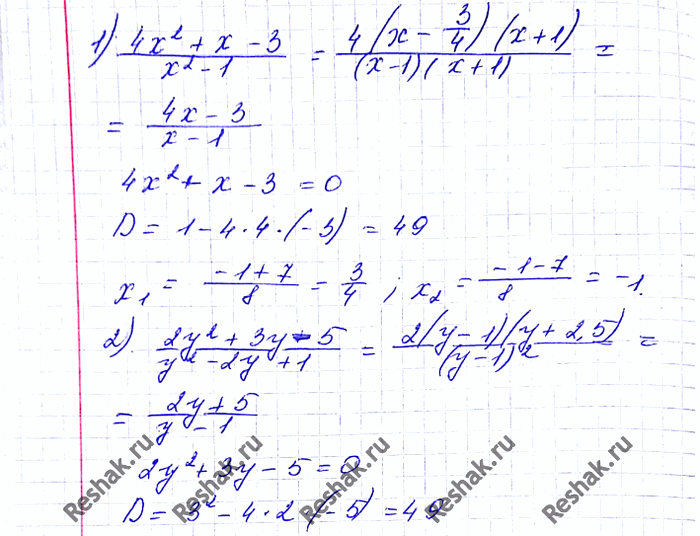 1) (4x² + x - 3)/(x² - 1) = (4(x - 3/4)(x + 1))/((x - 1)(x + 1)) =
= (4x - 3)/(x - 1)
4x² + x - 3 = 0
D = 1 - 4 · 4 · (-3) = 49
x₁ = (-1 + 7)/8 = 3/4 ; x₂ = (-1 - 7)/8 = -1.
2) (2y² + 3y - 5)/(y² - 2y + 1) = (2(y - 1)(y + 2,5))/((y - 1)²) =
= (2y + 5)/(y - 1)
2y² + 3y - 5 = 0
D = 3² - 4 · 2 · (-5) = 49
Reshak.ru Reshak.ru Reshak.ru Reshak.ru Reshak.ru